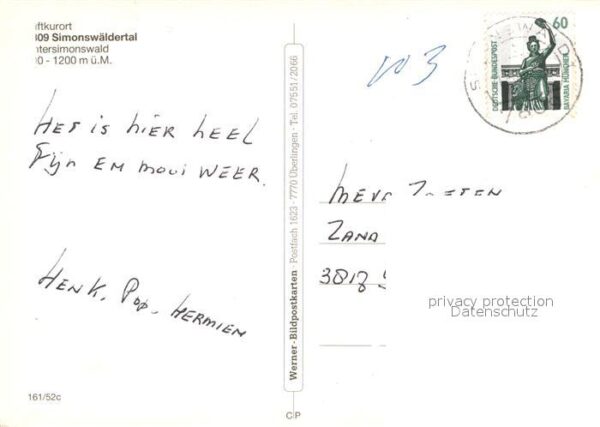 ftkurort
809 Simonswäldertal
ntersimonswald
0 - 1200 m ü.M.
HET IS HIER HEEL
Fijn EM mooi WEER.
HENK. Pop. HERMIEN
161/52c
Werner-Bildpostkarten · Postfach 1623 · 7770 Überlingen · Tel. 07551/2066
C|P
60
DEUTSCHE BUNDESPOST
BAVARIA MÜNCHEN
MEV
ZAND
privacy protection
Datenschutz